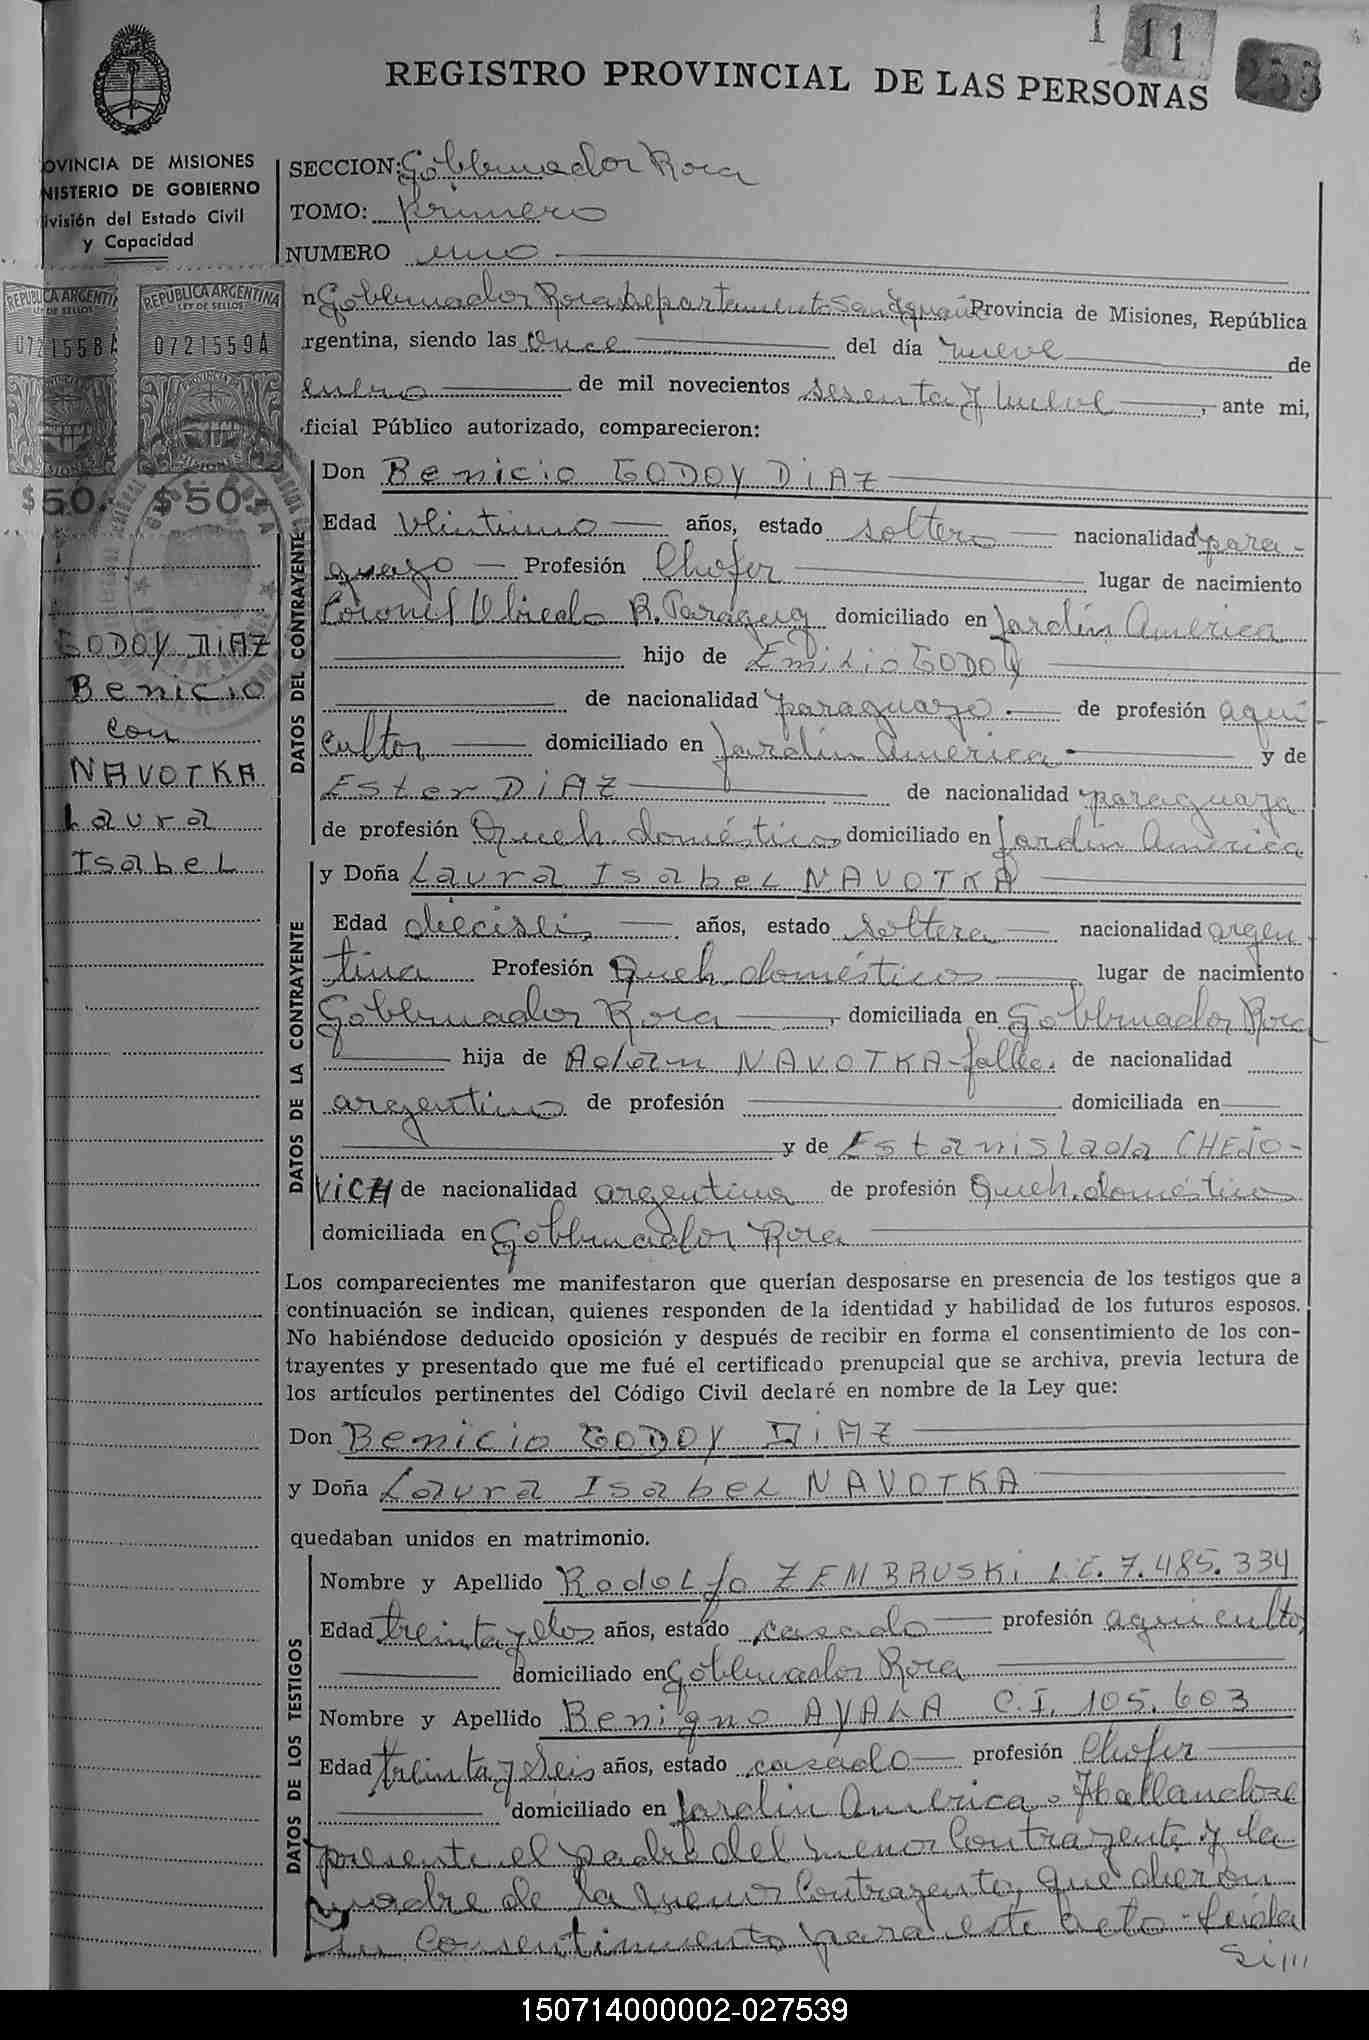 1 11
255
REGISTRO PROVINCIAL DE LAS PERSONAS
OVINCIA DE MISIONES
NISTERIO DE GOBIERNO
ivisión del Estado Civil
y Capacidad
SECCION: Gobernador Roca
TOMO: Primero
NUMERO uno
REPUBLICA ARGENTI
LEY DE SELLOS
0721558A
$50.-
REPUBLICA ARGENTINA
LEY DE SELLOS
0721559A
MISIONES
$50.-
GODOY DIAZ
Benicio
con
NAVOTKA
Laura
Isabel
n Gobernador Roca Departamento San Ignacio Provincia de Misiones, República
rgentina, siendo las Once del día nueve de
enero de mil novecientos sesenta y nueve, ante mi,
ficial Público autorizado, comparecieron:
DATOS DEL CONTRAYENTE
Don Benicio GODOY DIAZ
Edad Veintiuno años, estado soltero nacionalidad para-
guayo Profesión Chofer lugar de nacimiento
Coronel Oviedo R. Paraguay domiciliado en Jardín América
hijo de Emilio GODOY
de nacionalidad paraguayo de profesión agri-
cultor domiciliado en Jardín América y de
Ester DIAZ de nacionalidad paraguaya
de profesión Queh. domésticos domiciliado en Jardín América
DATOS DE LA CONTRAYENTE
y Doña Laura Isabel NAVOTKA
Edad dieciséis años, estado soltera nacionalidad argen
tina Profesión Queh. domésticos lugar de nacimiento
Gobernador Roca, domiciliada en Gobernador Roca
hija de Adam NAVOTKA-falle. de nacionalidad
argentino de profesión domiciliada en
y de Estanislada CHEJO-
VICH de nacionalidad argentina de profesión Queh. domésticos
domiciliada en Gobernador Roca
Los comparecientes me manifestaron que querían desposarse en presencia de los testigos que a
continuación se indican, quienes responden de la identidad y habilidad de los futuros esposos.
No habiéndose deducido oposición y después de recibir en forma el consentimiento de los con-
trayentes y presentado que me fué el certificado prenupcial que se archiva, previa lectura de
los artículos pertinentes del Código Civil declaré en nombre de la Ley que:
Don Benicio GODOY DIAZ
y Doña Laura Isabel NAVOTKA
quedaban unidos en matrimonio.
DATOS DE LOS TESTIGOS
Nombre y Apellido Rodolfo ZEMBRUSKi L.E. 7.485.334
Edad treinta y dos años, estado casado profesión agricultor
domiciliado en Gobernador Roca
Nombre y Apellido Benigno AYALA C.I. 105.603
Edad treinta y seis años, estado casado profesión Chofer
domiciliado en Jardín América. Hallandose
presente el padre del menor Contrayente y la
madre de la menor Contrayente, que dieron
su Consentimiento para este acto - Leída
Si///
150714000002-027539